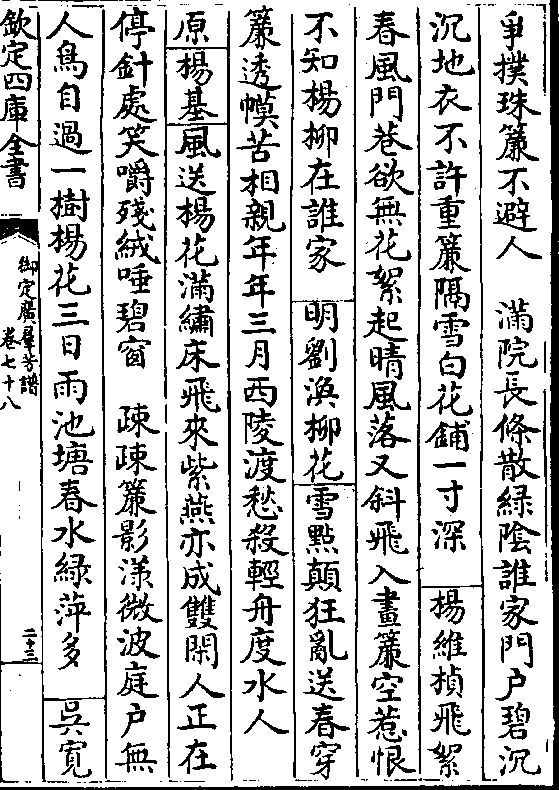 爭撲珠簾不避人　滿院長條散綠陰誰家門户碧沉
沉地衣不許重簾隔雪白花鋪一寸深　楊維楨飛絮
春風門巷欲無花絮起晴風落又斜飛入畫簾空惹恨
不知楊柳在誰家　明劉渙柳花雪㸃顛狂亂送春穿
簾透幙苦相親年年三月西陵渡愁殺輕舟度水人
原楊基風送楊花滿繡床飛來紫燕亦成雙閑人正在
停針處笑嚼殘絨唾碧窗　疎疎簾影漾微波庭户無
人鳥自過一樹楊花三日雨池塘春水綠萍多　吳寛
欽定四庫全書
御定廣羣芳譜
卷七十八
二十三